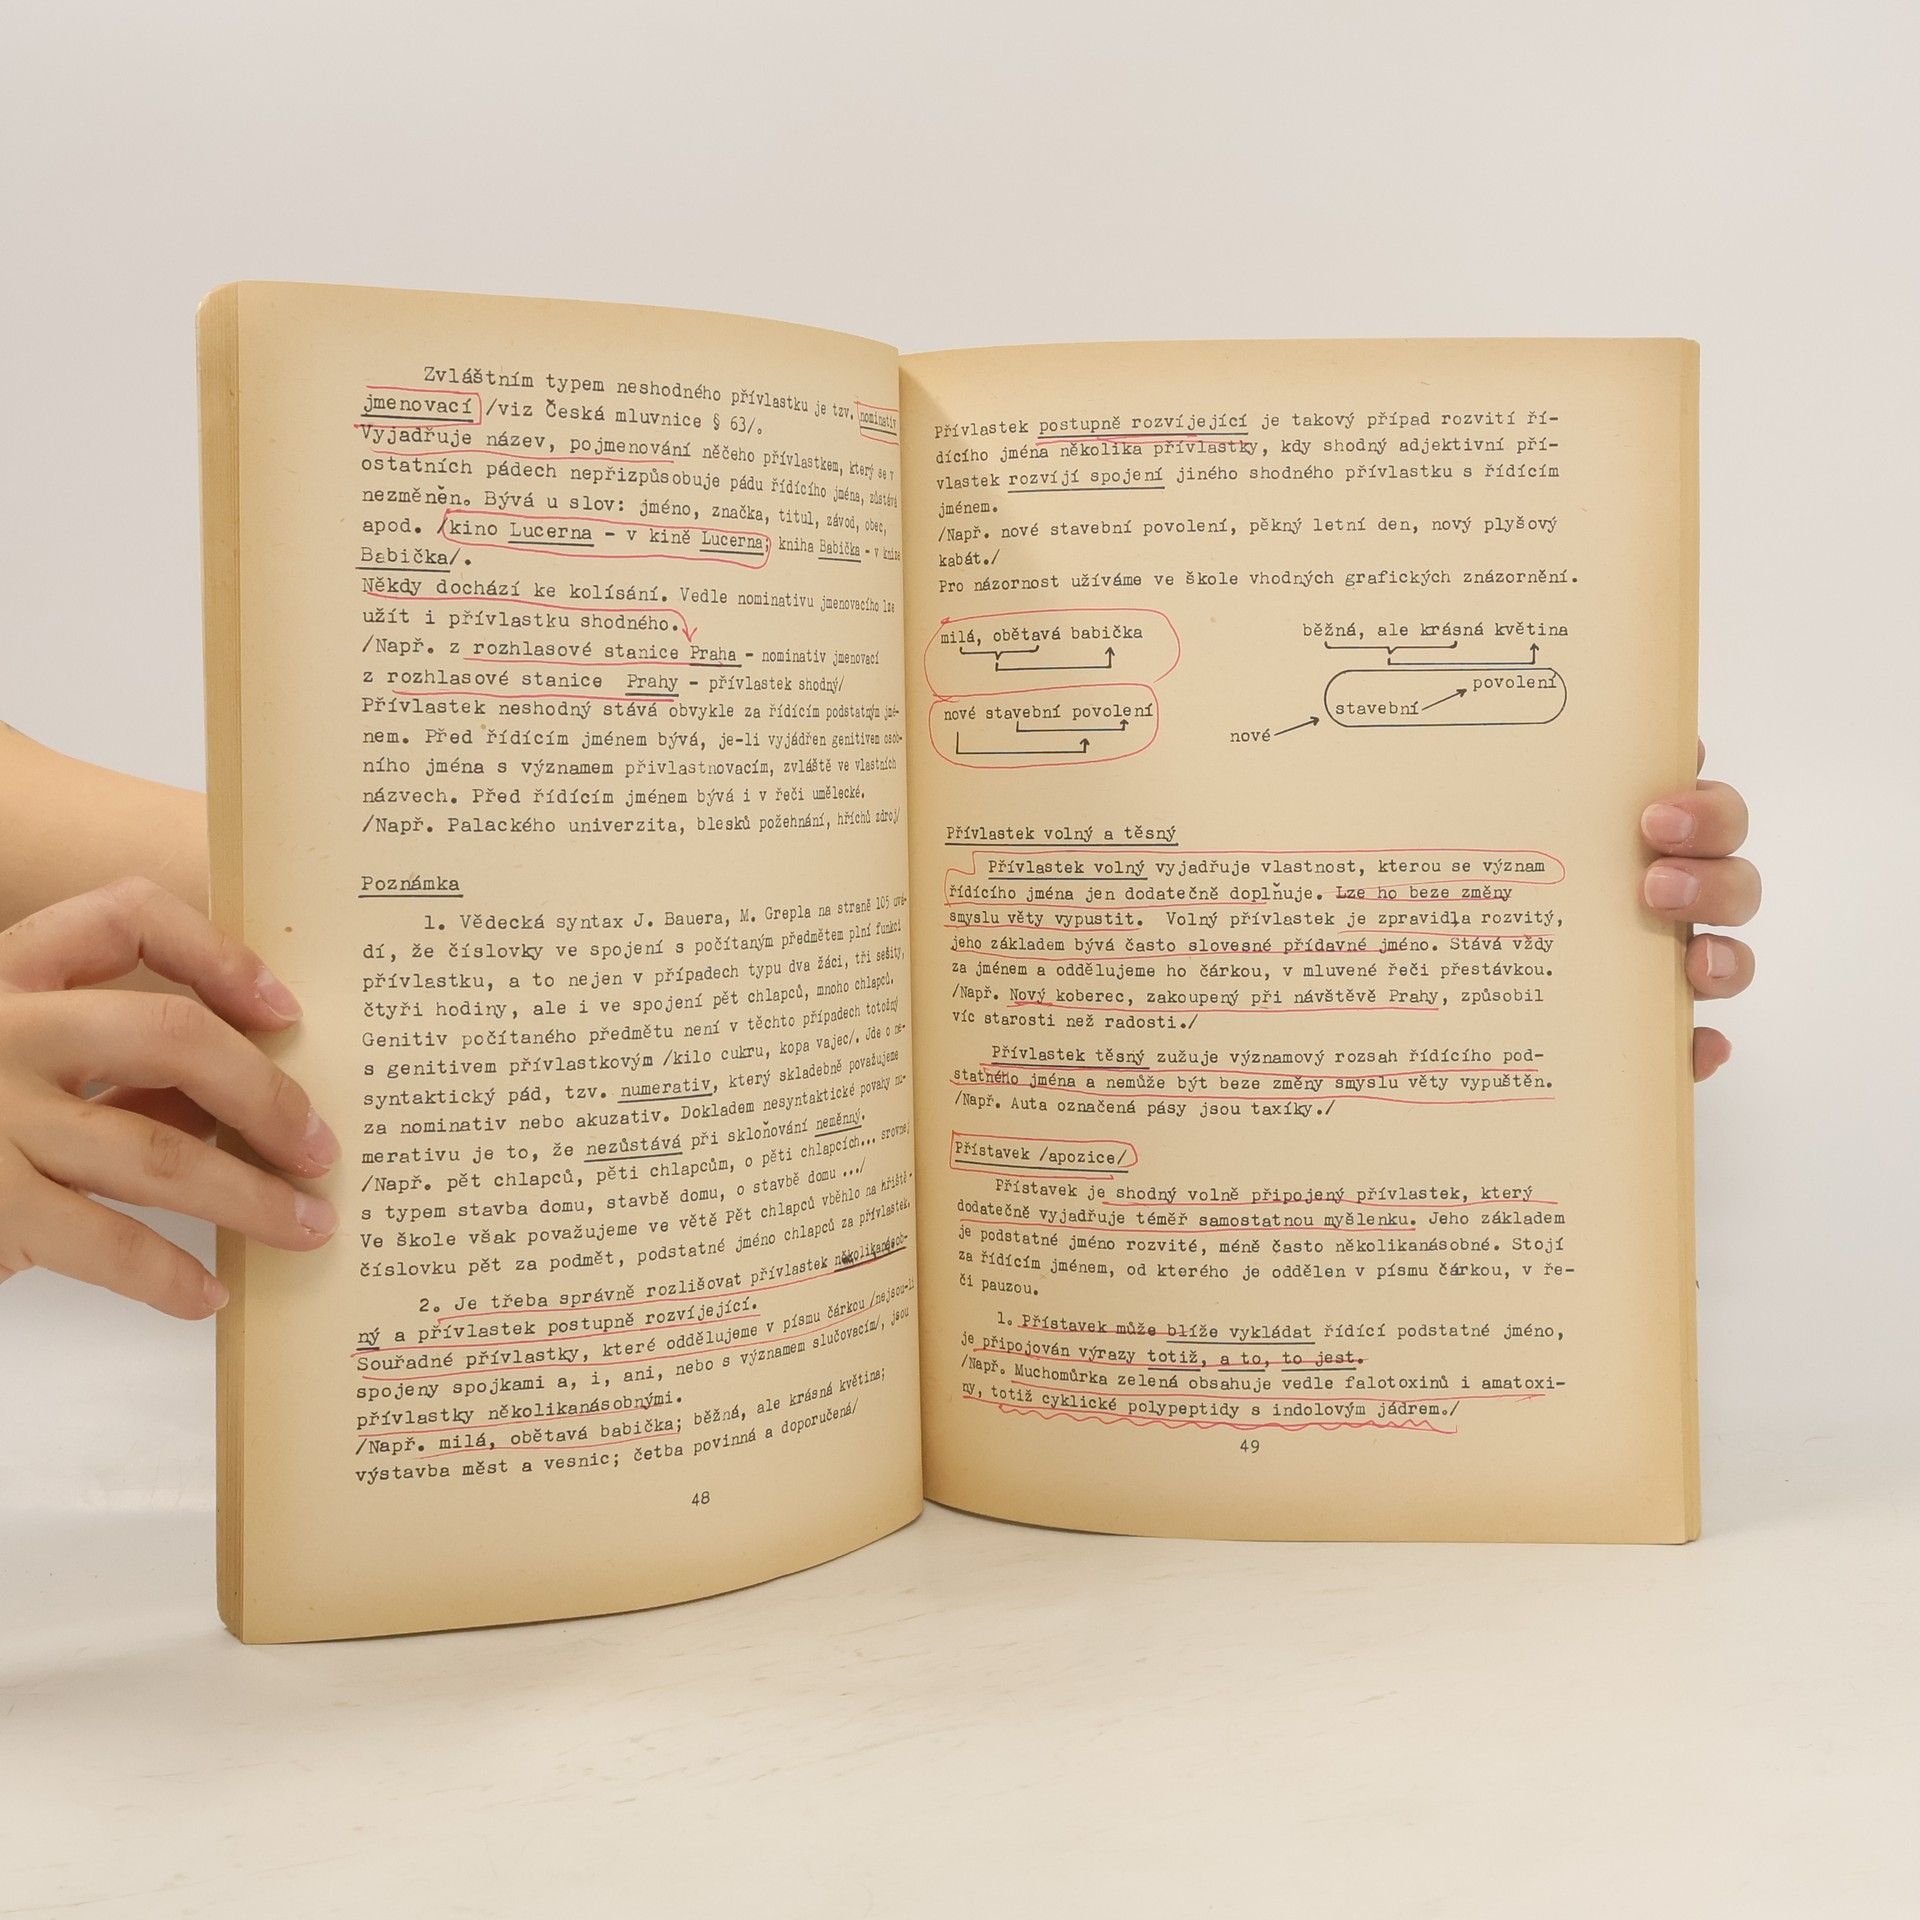 Zvláštním typem neshodného přívlastku je tzv. nominativ
jmenovací /viz Česká mluvnice § 63/.
Vyjadřuje název, pojmenování něčeho přívlastkem, který se v
ostatních pádech nepřizpůsobuje pádu řídícího jména, zůstává
nezměněn. Bývá u slov: jméno, značka, titul, závod, obec,
apod. /kino Lucerna - v kině Lucerna; kniha Babička - v knize
Babička/.
Někdy dochází ke kolísání. Vedle nominativu jmenovacího lze
užít i přívlastku shodného.
/Např. z rozhlasové stanice Praha - nominativ jmenovací
z rozhlasové stanice Prahy - přívlastek shodný/
Přívlastek neshodný stává obvykle za řídícím podstatným jmé-
nem. Před řídícím jménem bývá, je-li vyjádřen genitivem osob-
ního jména s významem přivlastnovacím, zvláště ve vlastních
názvech. Před řídícím jménem bývá i v řeči umělecké.
/Např. Palackého univerzita, blesků požehnání, hříchů zdroj/
Poznámka
1. Vědecká syntax J. Bauera, M. Grepla na straně 105 uvá-
dí, že číslovky ve spojení s počítaným předmětem plní funkci
přívlastku, a to nejen v případech typu dva žáci, tři sešity,
čtyři hodiny, ale i ve spojení pět chlapců, mnoho chlapců.
Genitiv počítaného předmětu není v těchto případech totožný
s genitivem přívlastkovým /kilo cukru, kopa vajec/. Jde o ne-
syntaktický pád, tzv. numerativ, který skladebně považujeme
za nominativ nebo akuzativ. Dokladem nesyntaktické povahy nu-
merativu je to, že nezůstává při skloňování neměnný.
/Např. pět chlapců, pěti chlapcům, o pěti chlapcích... srovnej
s typem stavba domu, stavbě domu, o stavbě domu .../
Ve škole však považujeme ve větě Pět chlapců vběhlo na hřiště-
číslovku pět za podmět, podstatné jméno chlapců za přívlastek.
2. Je třeba správně rozlišovat přívlastek několikanásob-
ný a přívlastek postupně rozvíjející.
Souřadné přívlastky, které oddělujeme v písmu čárkou /nejsou-li
spojeny spojkami a, i, ani, nebo s významem slučovacím/, jsou
přívlastky několikanásobnými.
/Např. milá, obětavá babička; běžná, ale krásná květina;
výstavba měst a vesnic; četba povinná a doporučená/
48
Přívlastek postupně rozvíjející je takový případ rozvití ří-
dícího jména několika přívlastky, kdy shodný adjektivní pří-
vlastek rozvíjí spojení jiného shodného přívlastku s řídícím
jménem.
/Např. nové stavební povolení, pěkný letní den, nový plyšový
kabát./
Pro názornost užíváme ve škole vhodných grafických znázornění.
milá, obětavá babička
běžná, ale krásná květina
nové stavební povolení
povolení
stavební
nové
Přívlastek volný a těsný
Přívlastek volný vyjadřuje vlastnost, kterou se význam
řídícího jména jen dodatečně doplňuje. Lze ho beze změny
smyslu věty vypustit. Volný přívlastek je zpravidla rozvitý,
jeho základem bývá často slovesné přídavné jméno. Stává vždy
za jménem a oddělujeme ho čárkou, v mluvené řeči přestávkou.
/Např. Nový koberec, zakoupený při návštěvě Prahy, způsobil
víc starosti než radosti./
Přívlastek těsný zužuje významový rozsah řídícího pod-
statného jména a nemůže být beze změny smyslu věty vypuštěn.
/Např. Auta označená pásy jsou taxíky./
Přístavek /apozice/
Přístavek je shodný volně připojený přívlastek, který
dodatečně vyjadřuje téměř samostatnou myšlenku. Jeho základem
je podstatné jméno rozvité, méně často několikanásobné. Stojí
za řídícím jménem, od kterého je oddělen v písmu čárkou, v ře-
či pauzou.
1. Přístavek může blíže vykládat řídící podstatné jméno,
je připojován výrazy totiž, a to, to jest.
/Např. Muchomůrka zelená obsahuje vedle falotoxinů i amatoxi-
ny, totiž cyklické polypeptidy s indolovým jádrem./
49